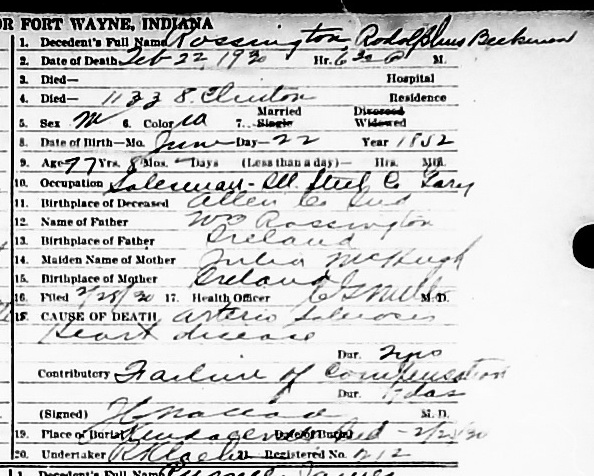 OR FORT WAYNE, INDIANA
1. Decedent's Full Name Rossington, Rodolphus Beekman
2. Date of Death Feb 22, 1930 Hr. 6 30 P M.
3. Died— Hospital
4. Died— 1133 S. Clinton Residence
5. Sex M 6. Color W 7. Married Single Divorced Widowed
8. Date of Birth—Mo. June Day 22 Year 1852
9. Age 77 Yrs. 8 Mos. — Days (Less than a day)— Hrs. Min.
10. Occupation Salesman - Ill. Steel Co Gary
11. Birthplace of Deceased Allen Co Ind
12. Name of Father Wm Rossington
13. Birthplace of Father Ireland
14. Maiden Name of Mother Julia McHugh
15. Birthplace of Mother Ireland
16. Filed 2/25/30 17. Health Officer M. D.
18. CAUSE OF DEATH Arterio Sclerosis
Heart disease
Dur. 2 yrs
Contributory Failure of Compensation
Dur. das
(Signed) M. D.
19. Place of Burial Date of Burial
20. Undertaker 21. Registered No. 212
1. Decedent's Full Name James